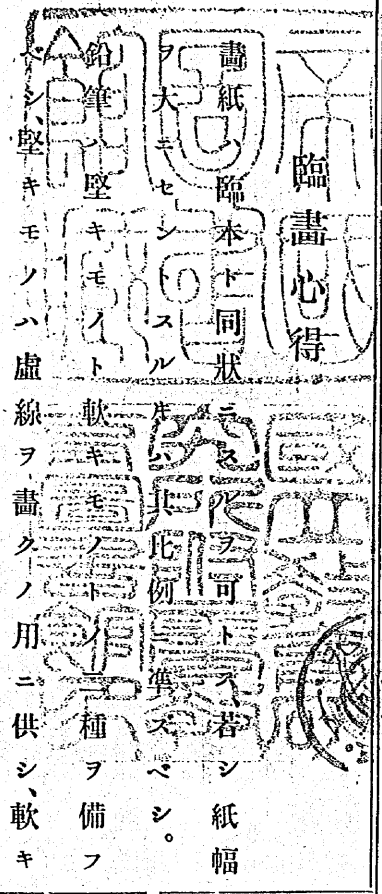 臨畫心得
畫紙ハ臨本ト同狀ニスルヲ可トス、若シ紙幅
ヲ大ニセントスル𪜈ハ其比例ニ準ズベシ。
鉛筆ハ堅キモノト軟キモノトノ二種ヲ備フ
ベシ、堅キモノハ虛線ヲ畫クノ用ニ供シ、軟キ